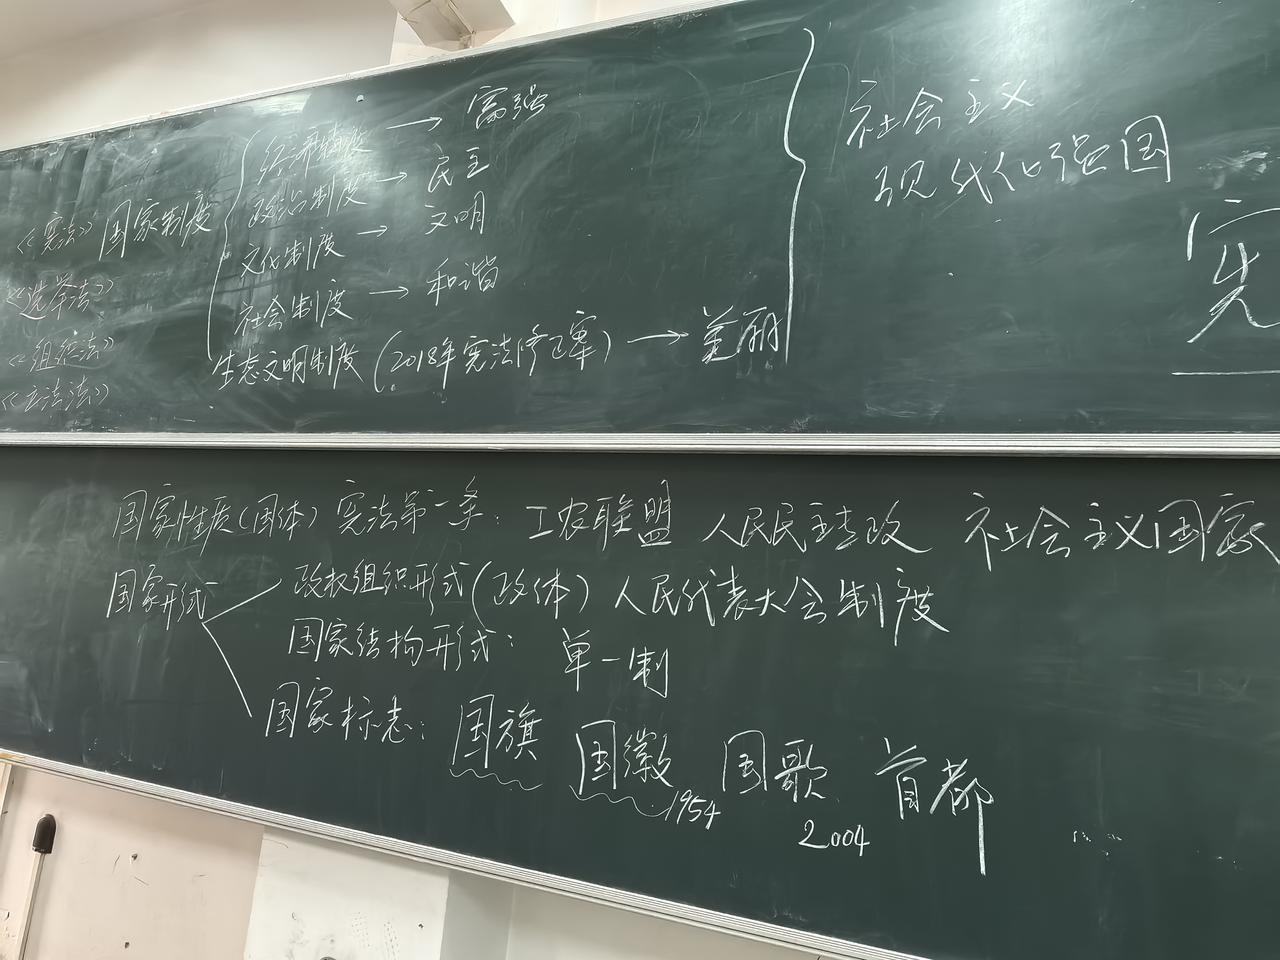 经济制度 → 富强
政治制度 → 民主
《宪法》国家制度 文化制度 → 文明
社会制度 → 和谐
生态文明制度（2018年宪法修正案）→ 美丽
《选举法》
《组织法》
《立法法》
社会主义
现代化强国
宪
国家性质（国体）宪法第一条：工农联盟 人民民主专政 社会主义国家
国家形式 政权组织形式（政体）人民代表大会制度
国家结构形式：单一制
国家标志：国旗 国徽 1954 国歌 2004 首都